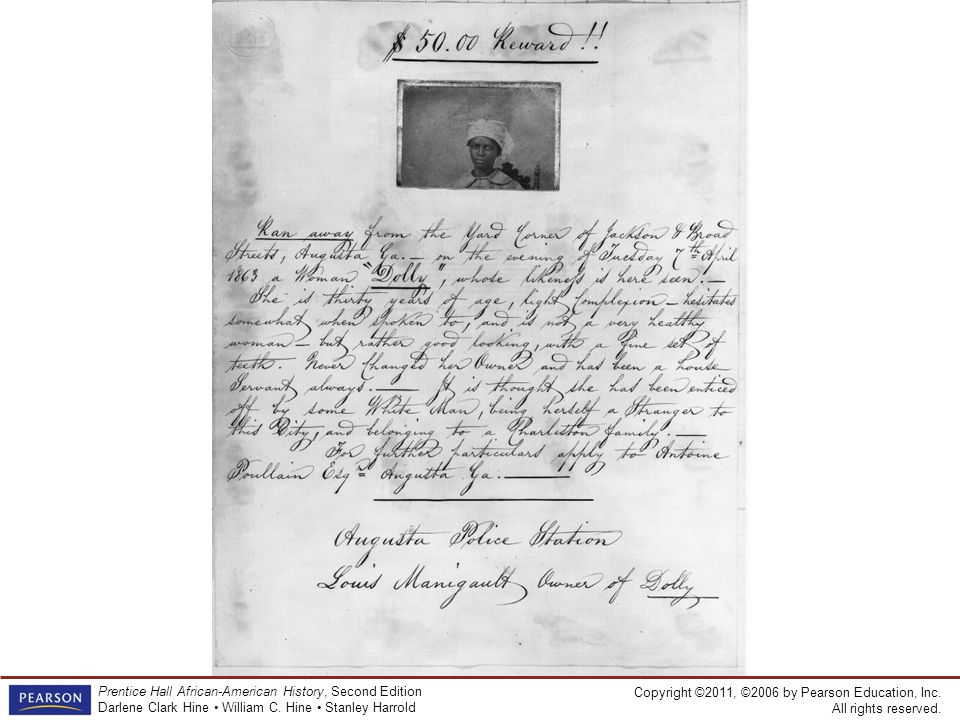 $ 50.00 Reward!!
Ran away from the Yard Corner of Jackson & Broad
Streets, Augusta Ga. — on the evening of Tuesday 7th April
1863 a Woman "Dolly", whose likeness is here seen. —
She is thirty years of age, light Complexion — hesitates
somewhat when spoken to, and is not a very healthy
woman — but rather good looking, with a fine set of
teeth. Never Changed her Owner and has been a house
Servant always. — It is thought she has been enticed
off by some White Man, being herself a Stranger to
this City, and belonging to a Charleston family. —
For further particulars apply to Antoine
Poullain Esqr Augusta Ga. —
Augusta Police Station
Louis Manigault Owner of Dolly
PEARSON
Prentice Hall African-American History, Second Edition
Darlene Clark Hine • William C. Hine • Stanley Harrold
Copyright ©2011, ©2006 by Pearson Education, Inc.
All rights reserved.